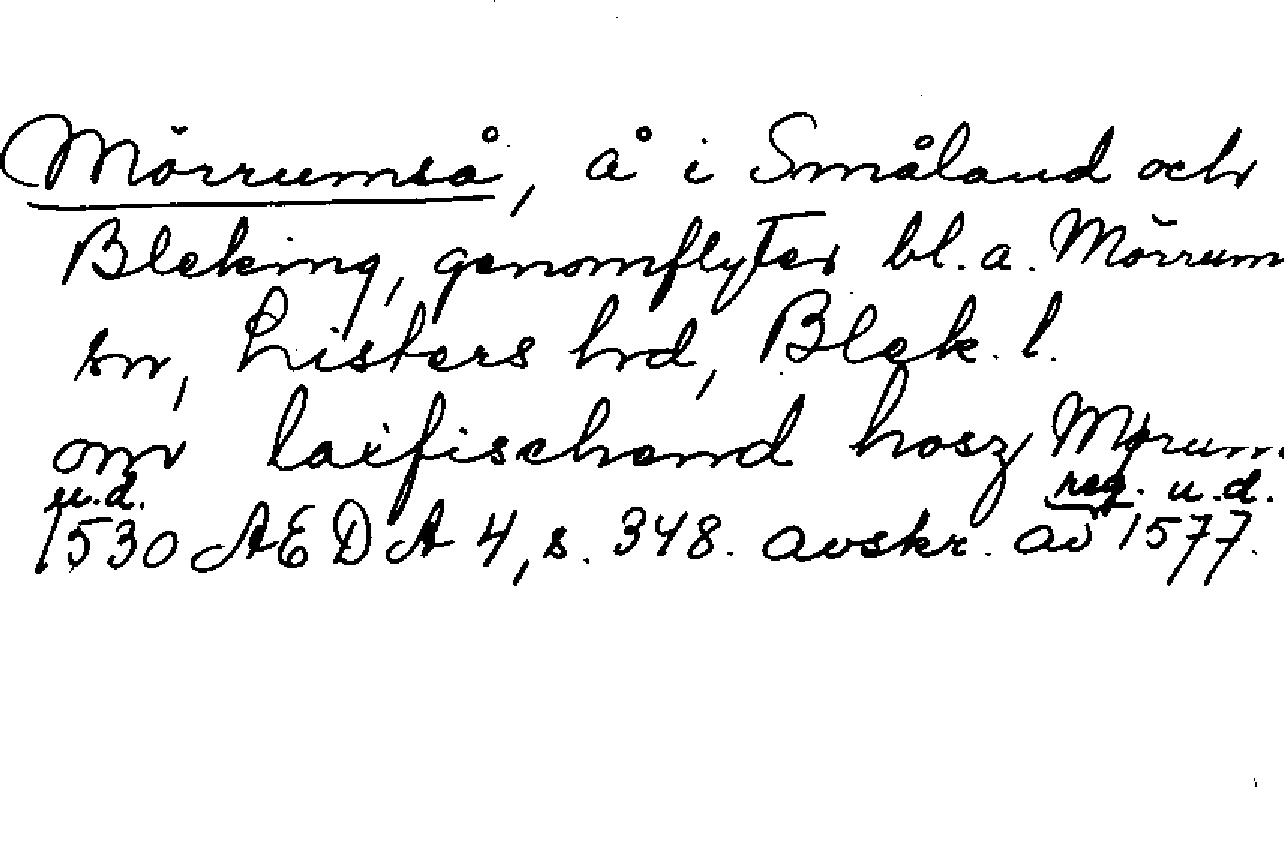 Mörrumså, å i Småland och
Bleking, genomflyter bl. a. Mörrum
sn, Listers hrd, Blek. l.
om laxfischend hosz Mørum
u.d. reg. u.d.
1530 AEDA 4, s. 348. avskr. av 1577.